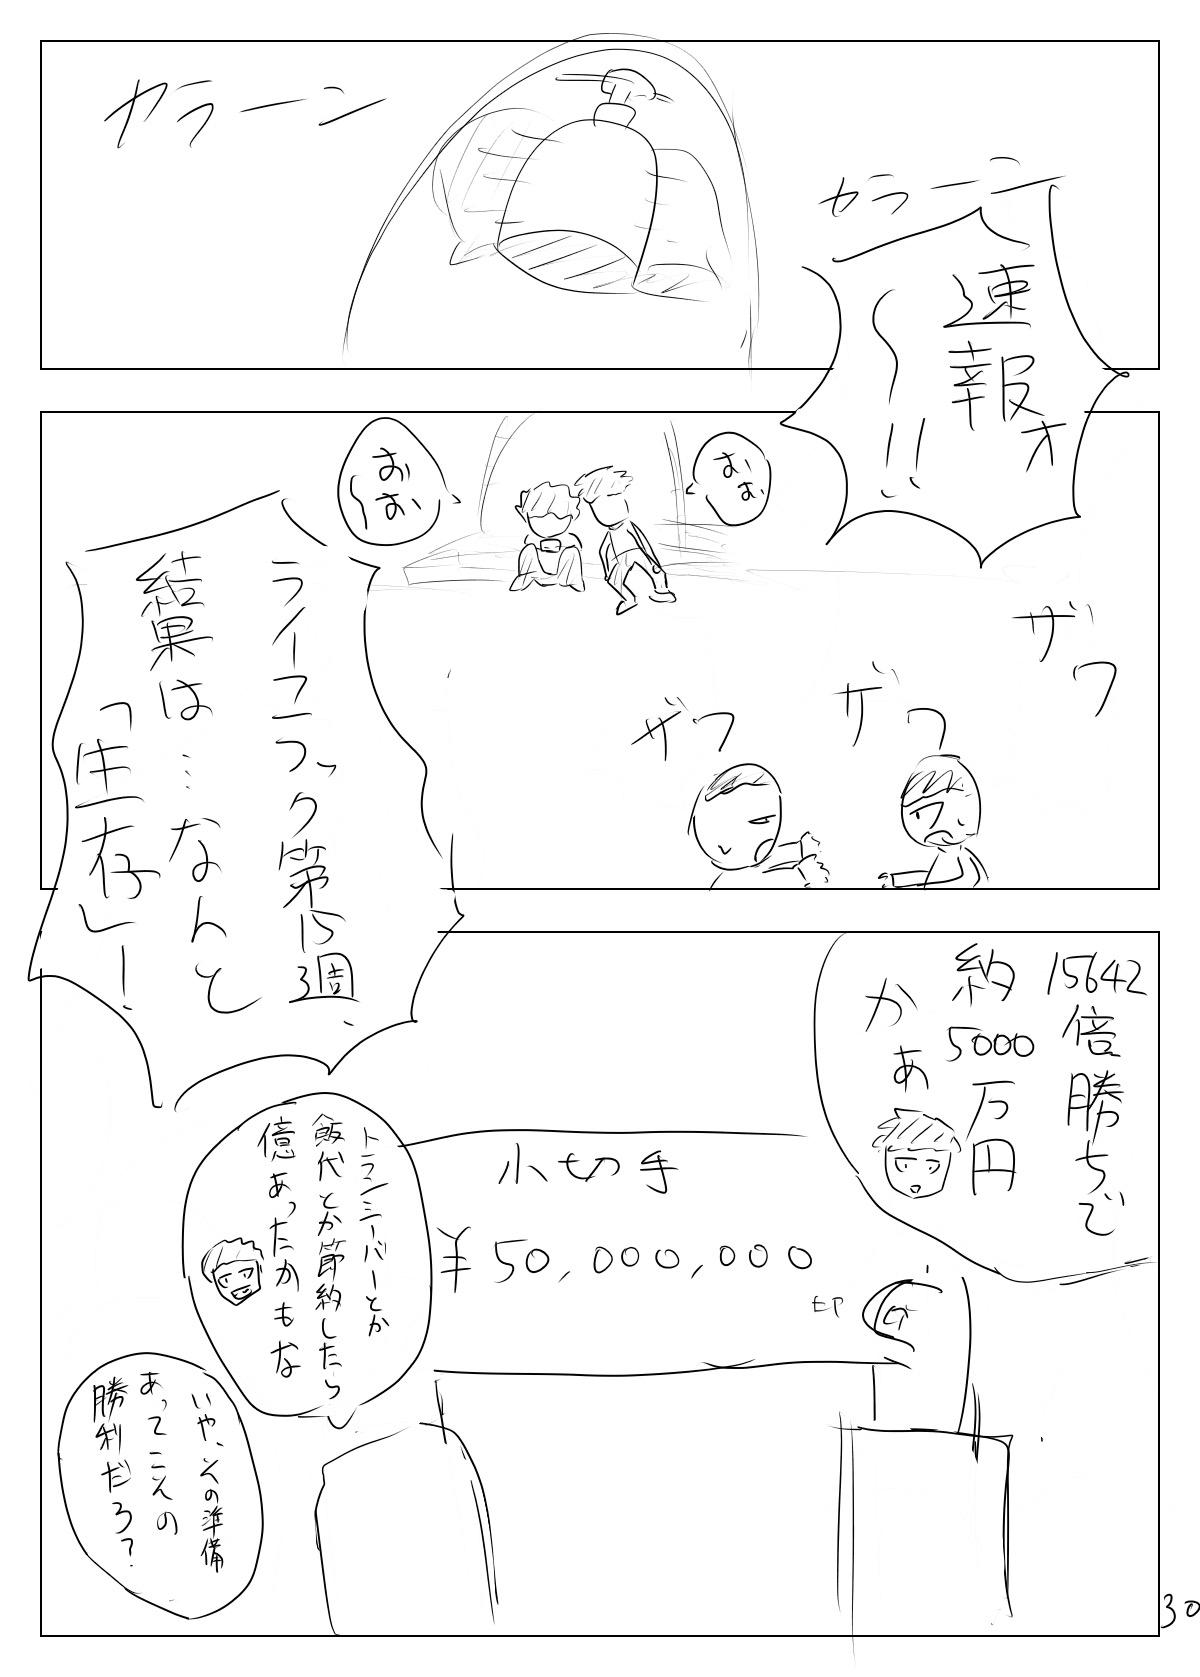 カラーン
カラーン
速報オ
〜!!
おお
おお〜
ザワ
ザワ
ザワ
ライフラック第15週
結果は…なんと
「生存」!
15642
倍勝ちで
約5000万円
かぁ
小切手
¥50,000,000
印
トランシーバーとか
飯代とか節約したら
億あったかもな
いや、その準備
あってこその
勝利だろ?
30